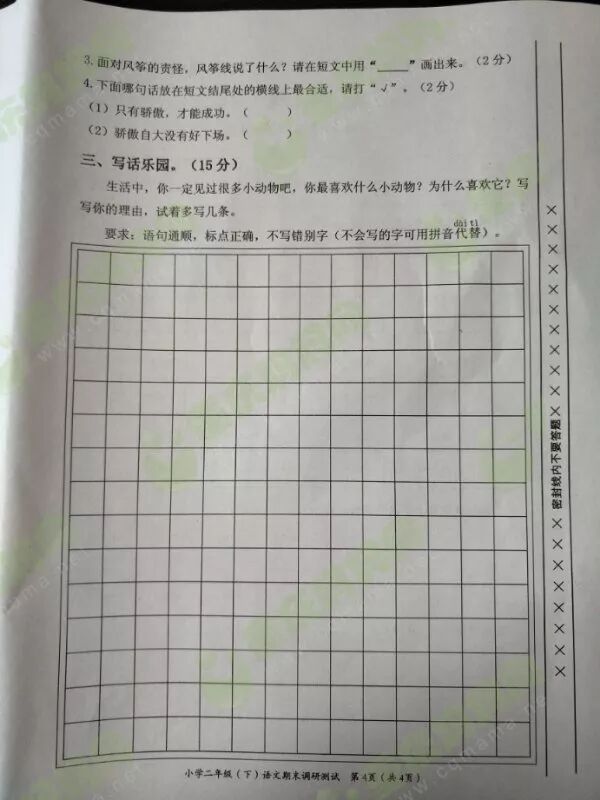 3. 面对风筝的责怪，风筝线说了什么？请在短文中用“_____”画出来。（2分）
4. 下面哪句话放在短文结尾处的横线上最合适，请打“√”。（2分）
（1）只有骄傲，才能成功。（　　）
（2）骄傲自大没有好下场。（　　）
三、写话乐园。（15分）
生活中，你一定见过很多小动物吧，你最喜欢什么小动物？为什么喜欢它？写
写你的理由，试着多写几条。
dài tì
要求：语句通顺，标点正确，不写错别字（不会写的字可用拼音代替）。
密封线内不要答题
小学二年级（下）语文期末调研测试　第4页（共4页）
www.cqmama.net